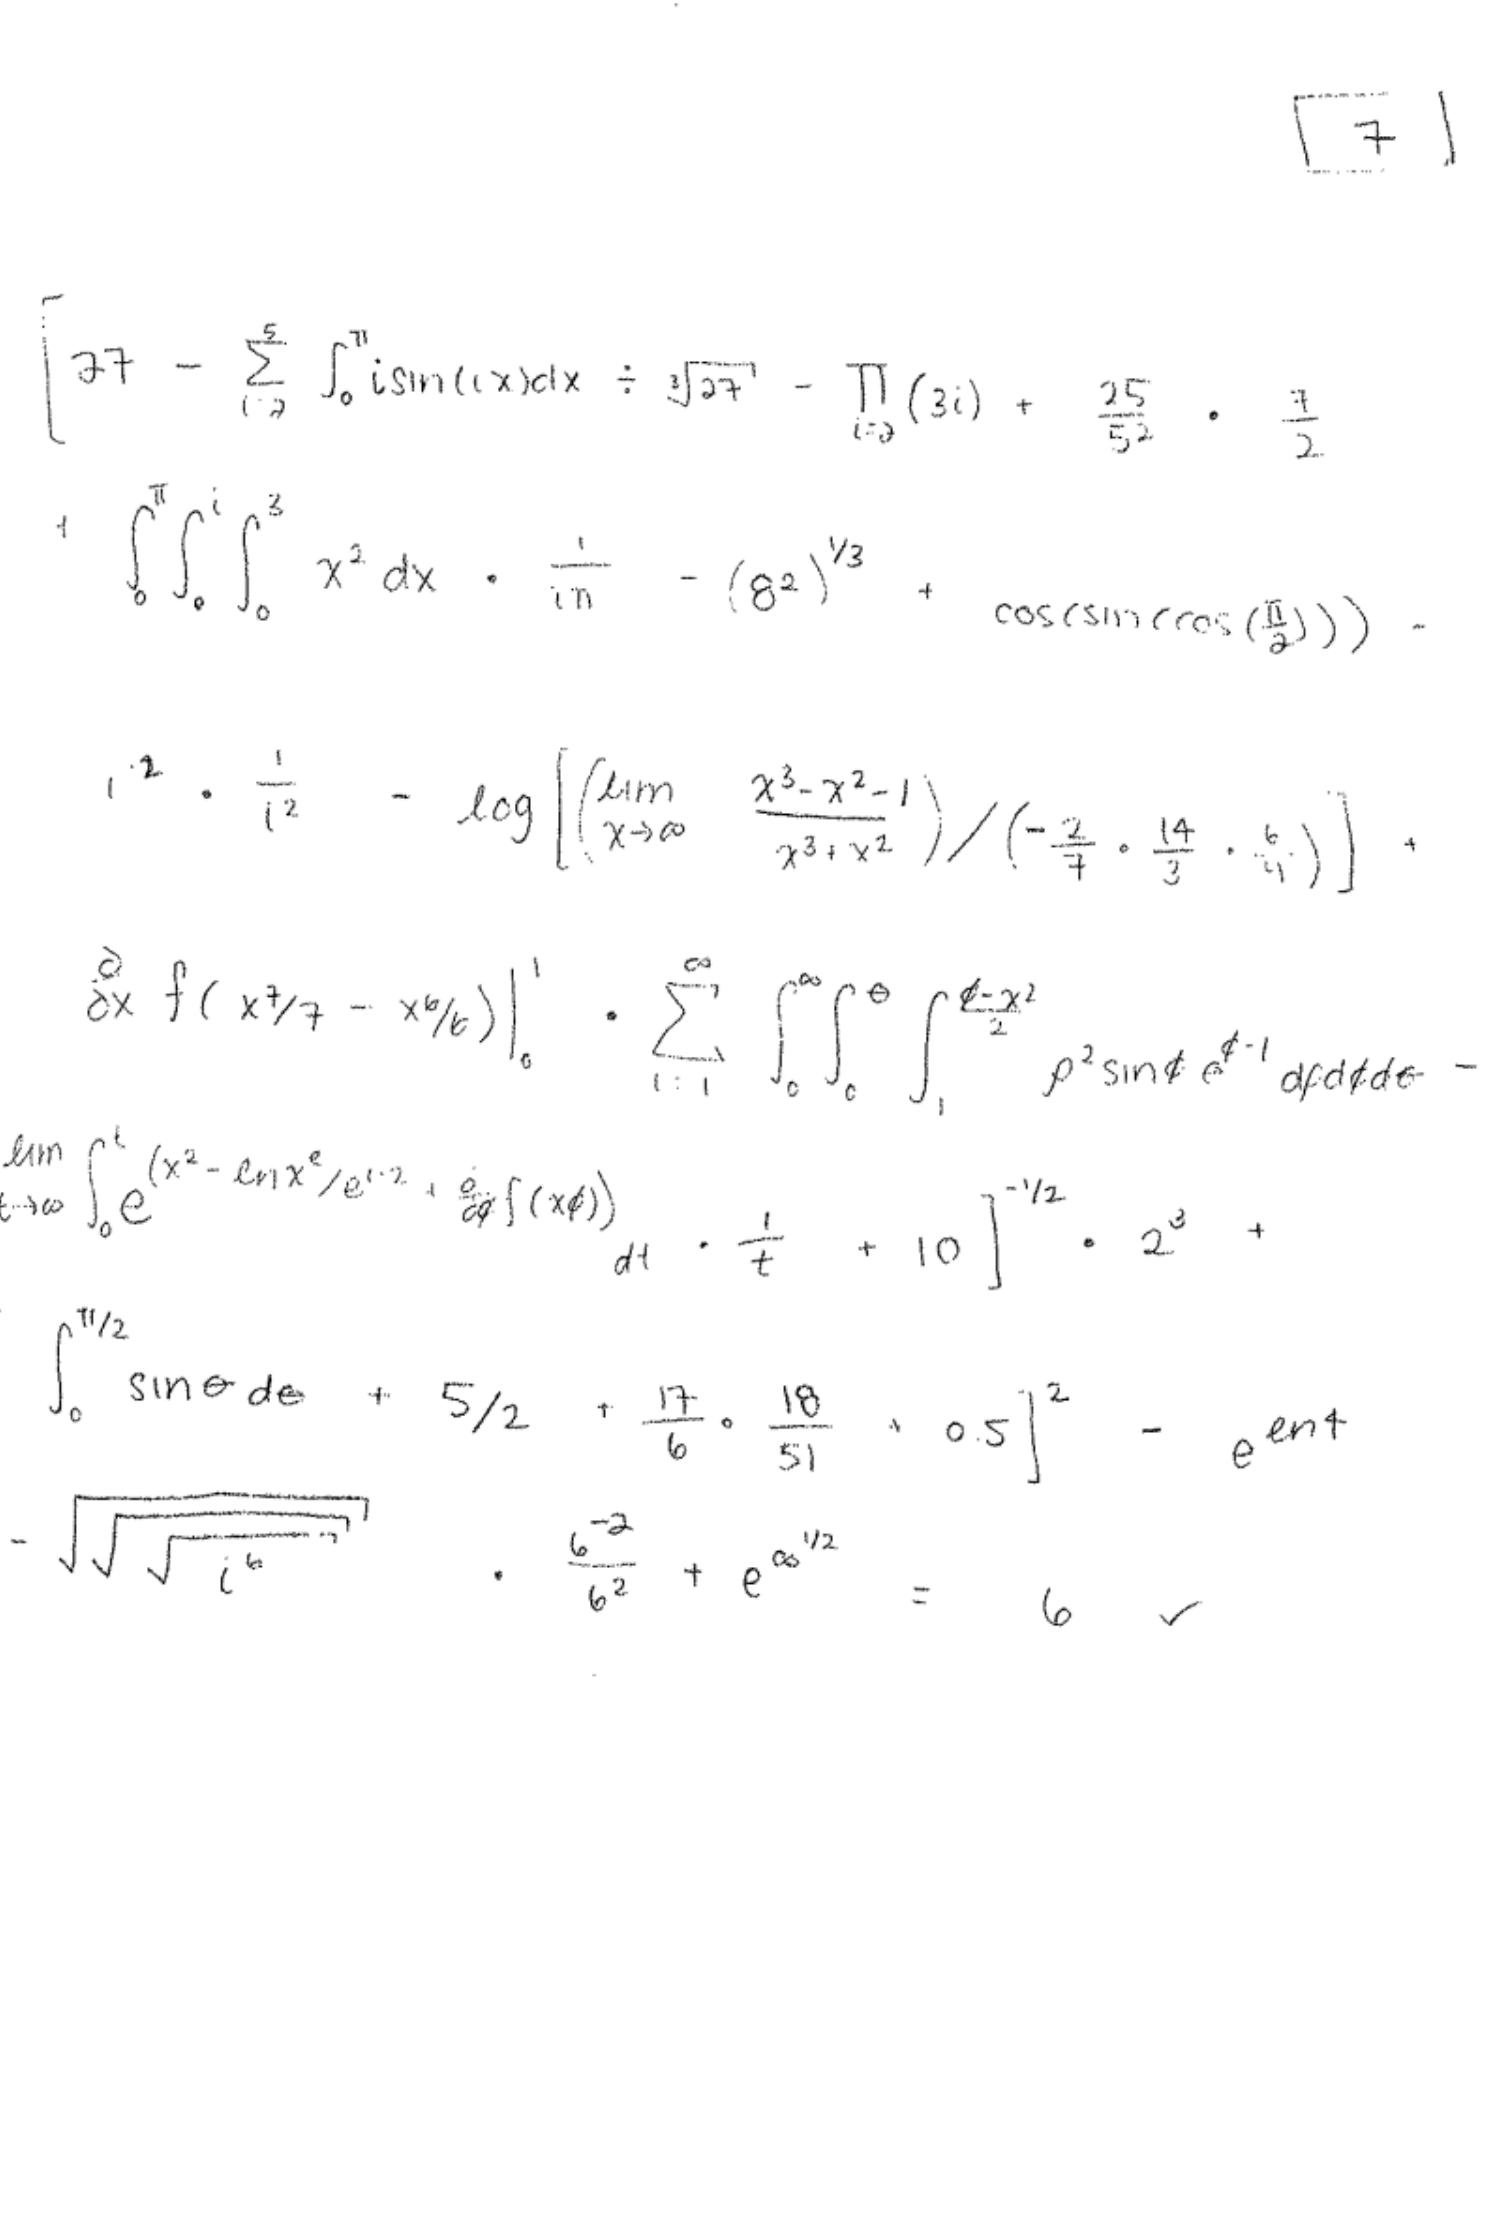 7
[27 - ∑_{i=2}^{5} ∫_0^π i sin(ix)dx ÷ ∛27 - ∏_{i=2} (3i) + 25/52 · 7/2
+ ∫_0^π ∫_0^i ∫_0^3 x² dx · 1/iπ - (8²)^{1/3} + cos(sin(cos(π/2))) -
i² · 1/i² - log[(lim_{x→∞} (x³-x²-1)/(x³+x²))/(-2/7 · 14/3 · 6/4)] +
∂/∂x f(x⁷/7 - x⁶/6)|_0^1 · ∑_{i=1}^{∞} ∫_0^∞ ∫_0^θ ∫_1^{(ϕ-x²)/2} ρ² sinϕ e^{ϕ-1} dρdϕdθ -
lim_{t→∞} ∫_0^t e^{(x² - ln x^e/e^{i·2} + ∂/∂ϕ f(xϕ))} dt · 1/t + 10]^{-1/2} · 2³ +
∫_0^{π/2} sinθ dθ + 5/2 + 17/6 · 18/51 + 0.5]² - e^{ln4}
- √√√i⁶ · 6^{-2}/6² + e^{∞^{1/2}} = 6 ✓